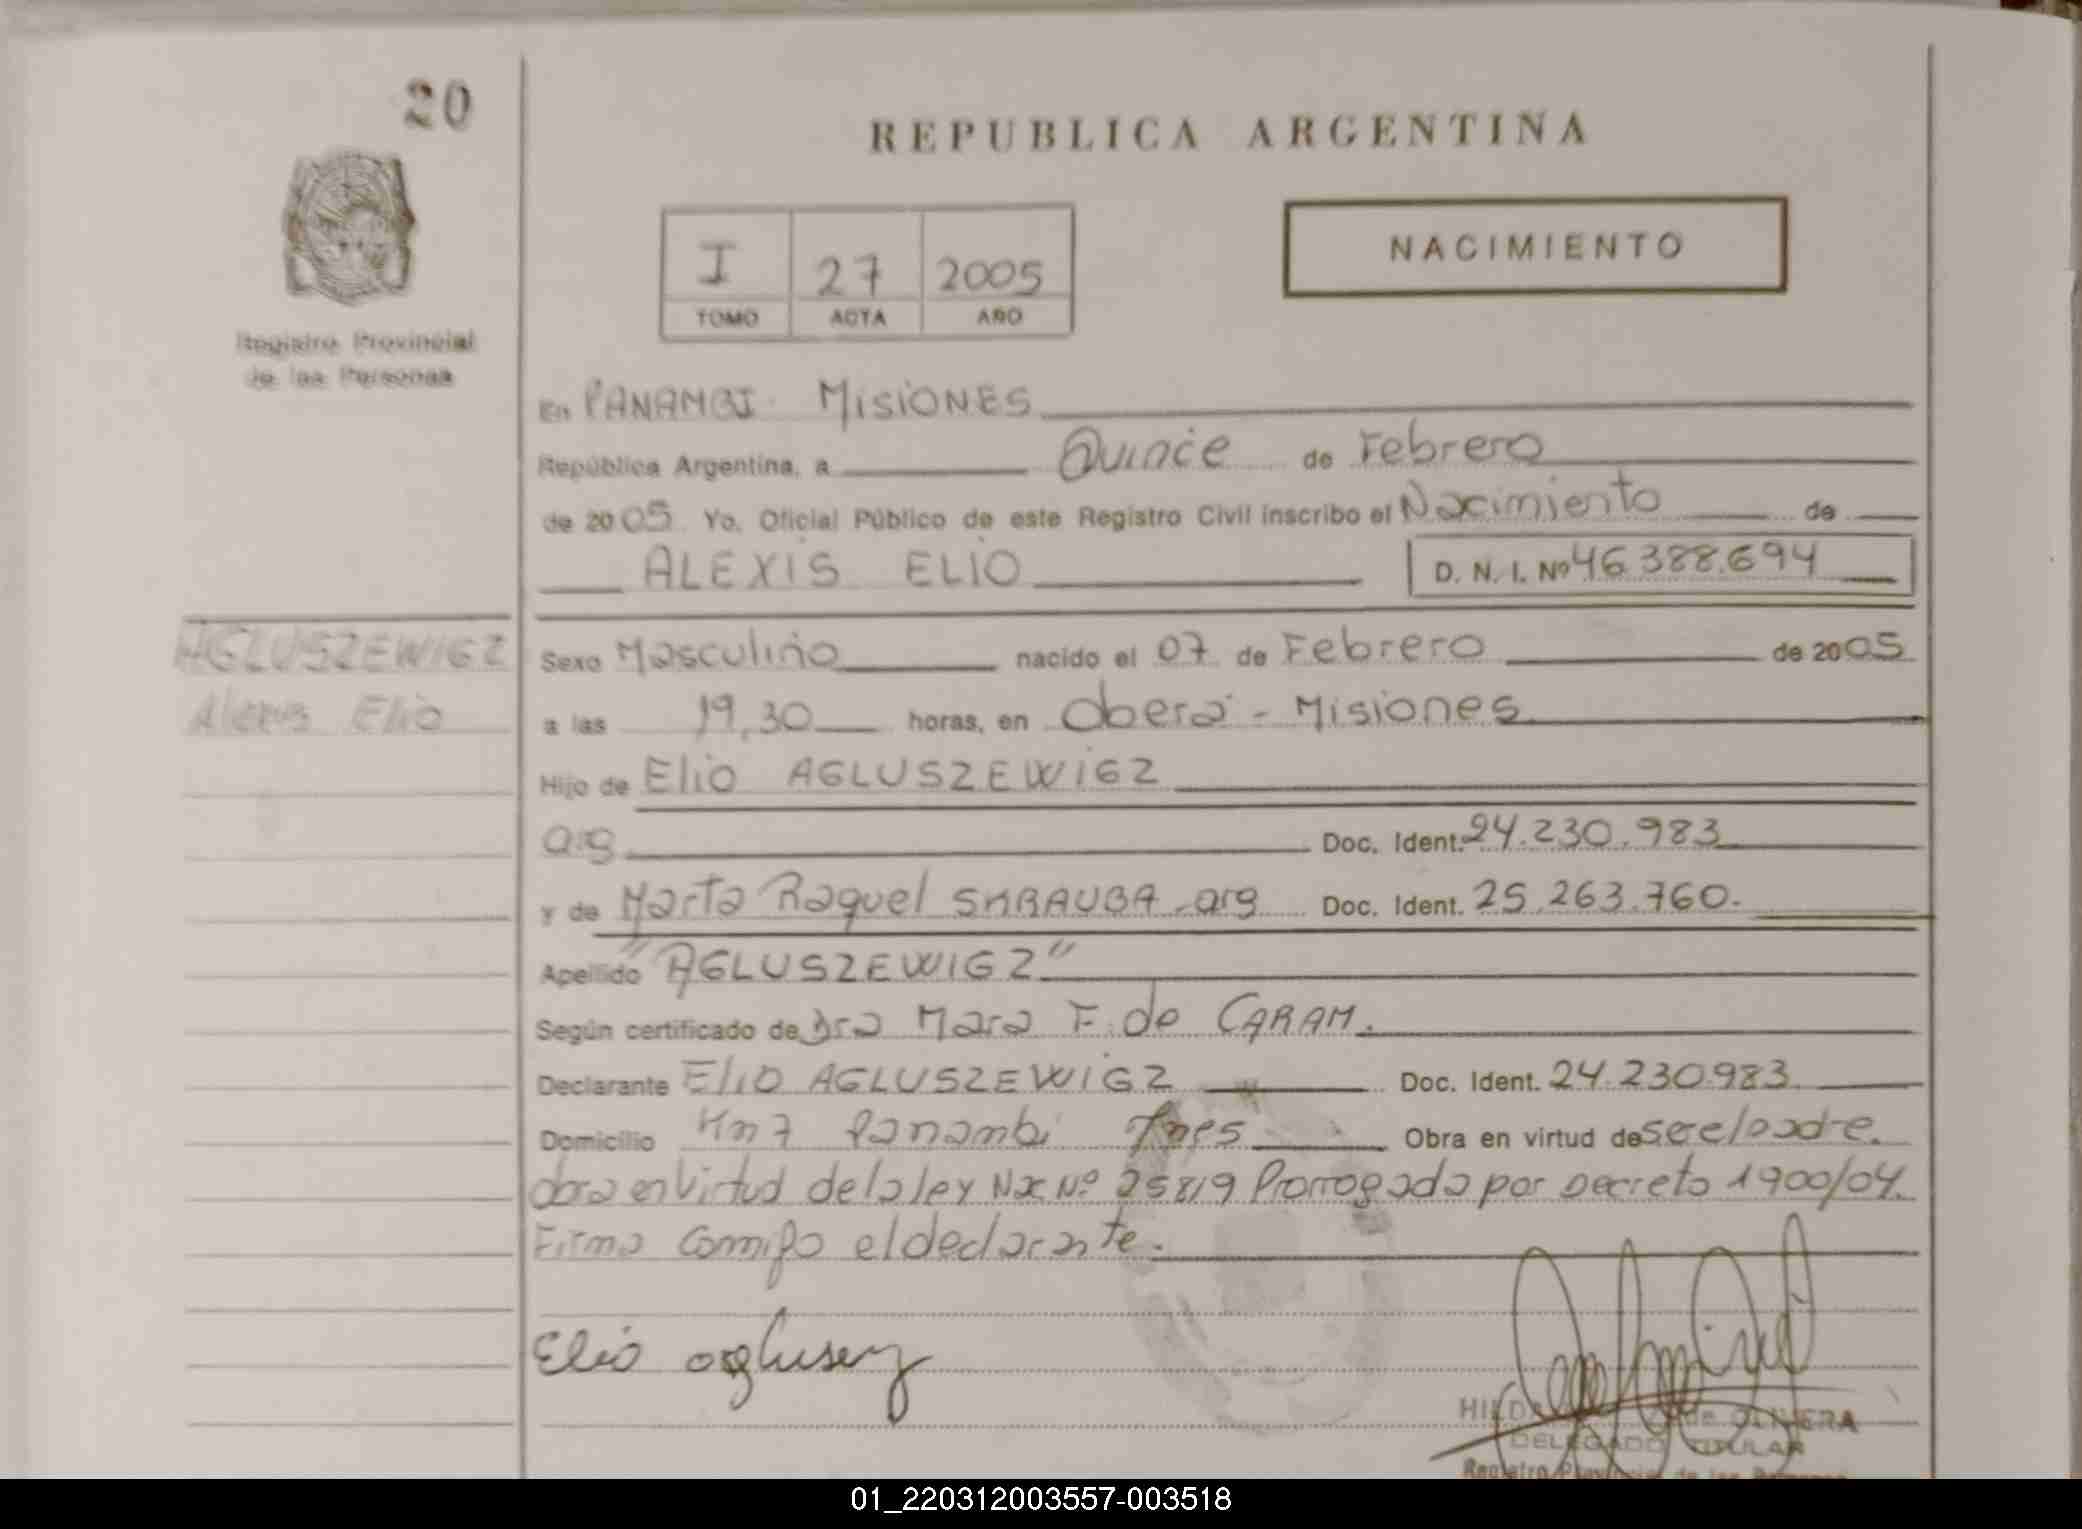 20
REPUBLICA ARGENTINA
NACIMIENTO
I 27 2005
TOMO ACTA AÑO
Registro Provincial
de las Personas
En PANAMBI. MISIONES
República Argentina, a Quince de Febrero
de 2005 Yo. Oficial Público de este Registro Civil inscribo el Nacimiento de
ALEXIS ELIO D. N. I. Nº 46.388.694
AGLUSZEWIGZ
Alexis Elio
Sexo Masculino nacido el 07 de Febrero de 2005
a las 19,30 horas, en Oberá - Misiones
Hijo de Elio AGLUSZEWIGZ
arg Doc. Ident. 24.230.983
y de Marta Raquel SKRAUBA - arg Doc. Ident. 25.263.760.
Apellido "AGLUSZEWIGZ"
Según certificado de Dra Mara F. de CARAM.
Declarante Elio AGLUSZEWIGZ Doc. Ident. 24.230.983
Domicilio Km 7 Panambi Mnes Obra en virtud de ser el padre.
obra en Virtud de la ley Nac Nº 25819 Prorrogada por Decreto 1900/04.
Firma conmigo el declarante.
Elio
HILDA de OLIVERA
DELEGADO TITULAR
Registro Provincial de las Personas
01_220312003557-003518